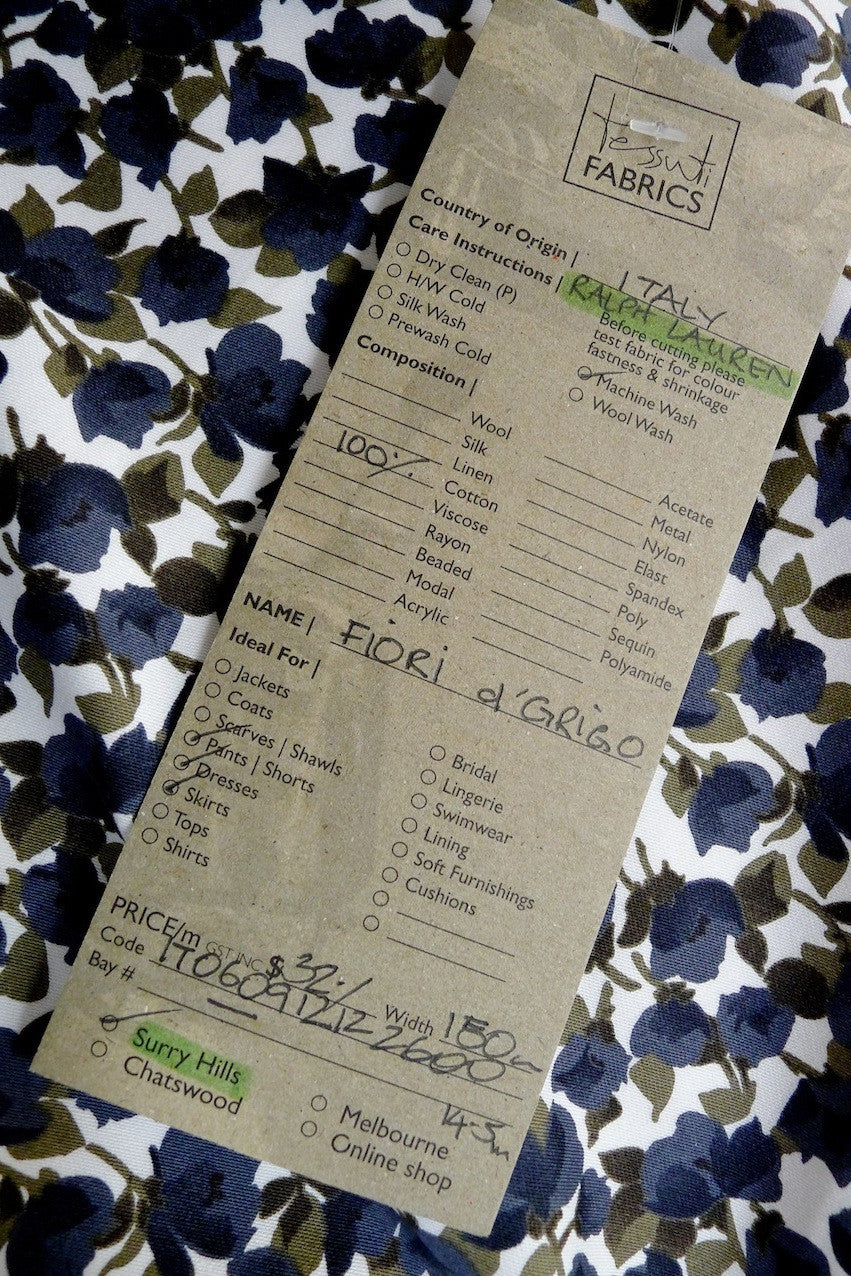 tessuti
FABRICS
Country of Origin | ITALY
Care Instructions | RALPH LAUREN
Dry Clean (P)
H/W Cold
Silk Wash
Prewash Cold
Before cutting please
test fabric for colour
fastness & shrinkage
Machine Wash
Wool Wash
Composition |
Wool
Silk
Linen
100% Cotton
Viscose
Rayon
Beaded
Modal
Acrylic
Acetate
Metal
Nylon
Elast
Spandex
Poly
Sequin
Polyamide
NAME | FIORI d'GRIGO
Ideal For |
Jackets
Coats
Scarves | Shawls
Pants | Shorts
Dresses
Skirts
Tops
Shirts
Bridal
Lingerie
Swimwear
Lining
Soft Furnishings
Cushions
PRICE/m GST INC $ 32./ Width 150cm
Code 1T06091212 2600
Bay #
14.5m
Surry Hills
Chatswood
Melbourne
Online shop